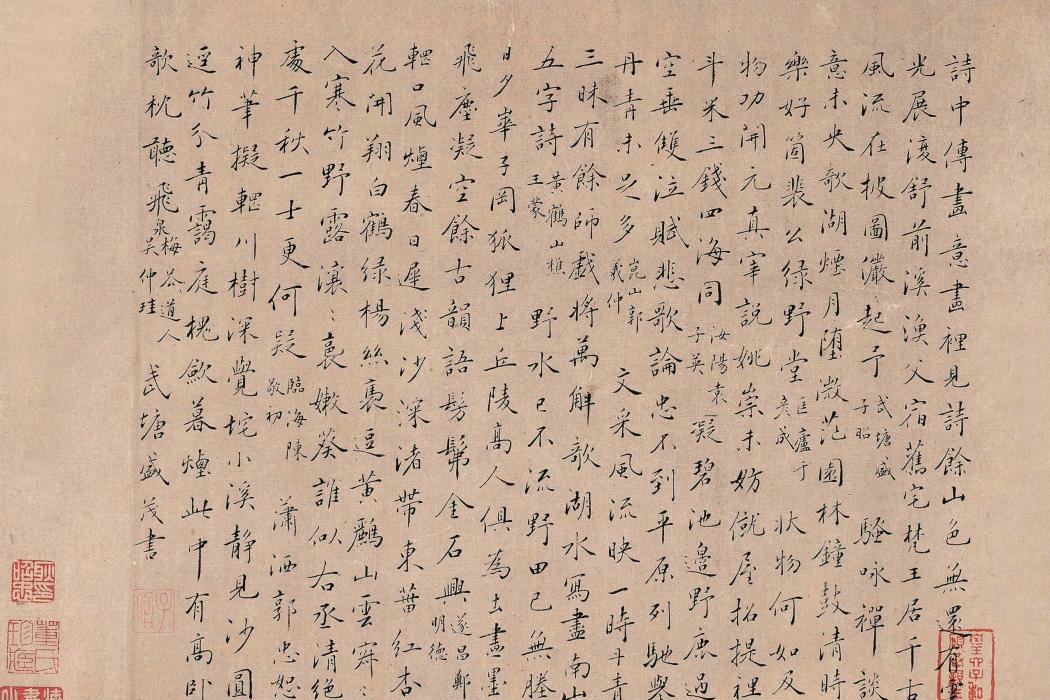 詩中傳畫意畫裡見詩餘山色無還有
光展澓舒前溪漁父宿舊宅楚王居千古
風流在披圖儼起予武塘盛子昭騷咏禪談
意未央欹湖煙月堕漵范園林鐘鼓清時
樂好箇裴公緑野堂匡廬于彥成狀物何如及
物功開元真宰說姚崇未妨僦屋招提裡
斗米三錢四海同汝陽袁子英凝碧池邊野鹿過
空垂雙泣賦悲歌論忠不到平原列馳譽
丹青未足多崑山郭羲仲文采風流映一時斗青
三昧有餘師戯將萬斛歌湖水寫盡南山
五字詩黃鶴山樵王蒙野水已不流野田已無塍
日夕華子岡狐狸上丘陵髙人俱為土畫墨
飛塵凝空餘古韻語髣髴金石興遂昌鄭明德
輞口風煙春日遲淺沙深渚帶東菑紅杏
花開翔白鶴緑楊絲裊逗黃鸝山雲寂〻
入寒竹野露瀼〻裛嫩葵誰似右丞清絕
處千秋一士更何疑臨海陳敬初瀟洒郭忠恕
神筆擬輞川樹深覺垞小溪靜見沙圓
逕竹分青靄庭槐歛暮煙此中有髙卧
欹枕聽飛泉梅花道人吳仲珪武塘盛茂書